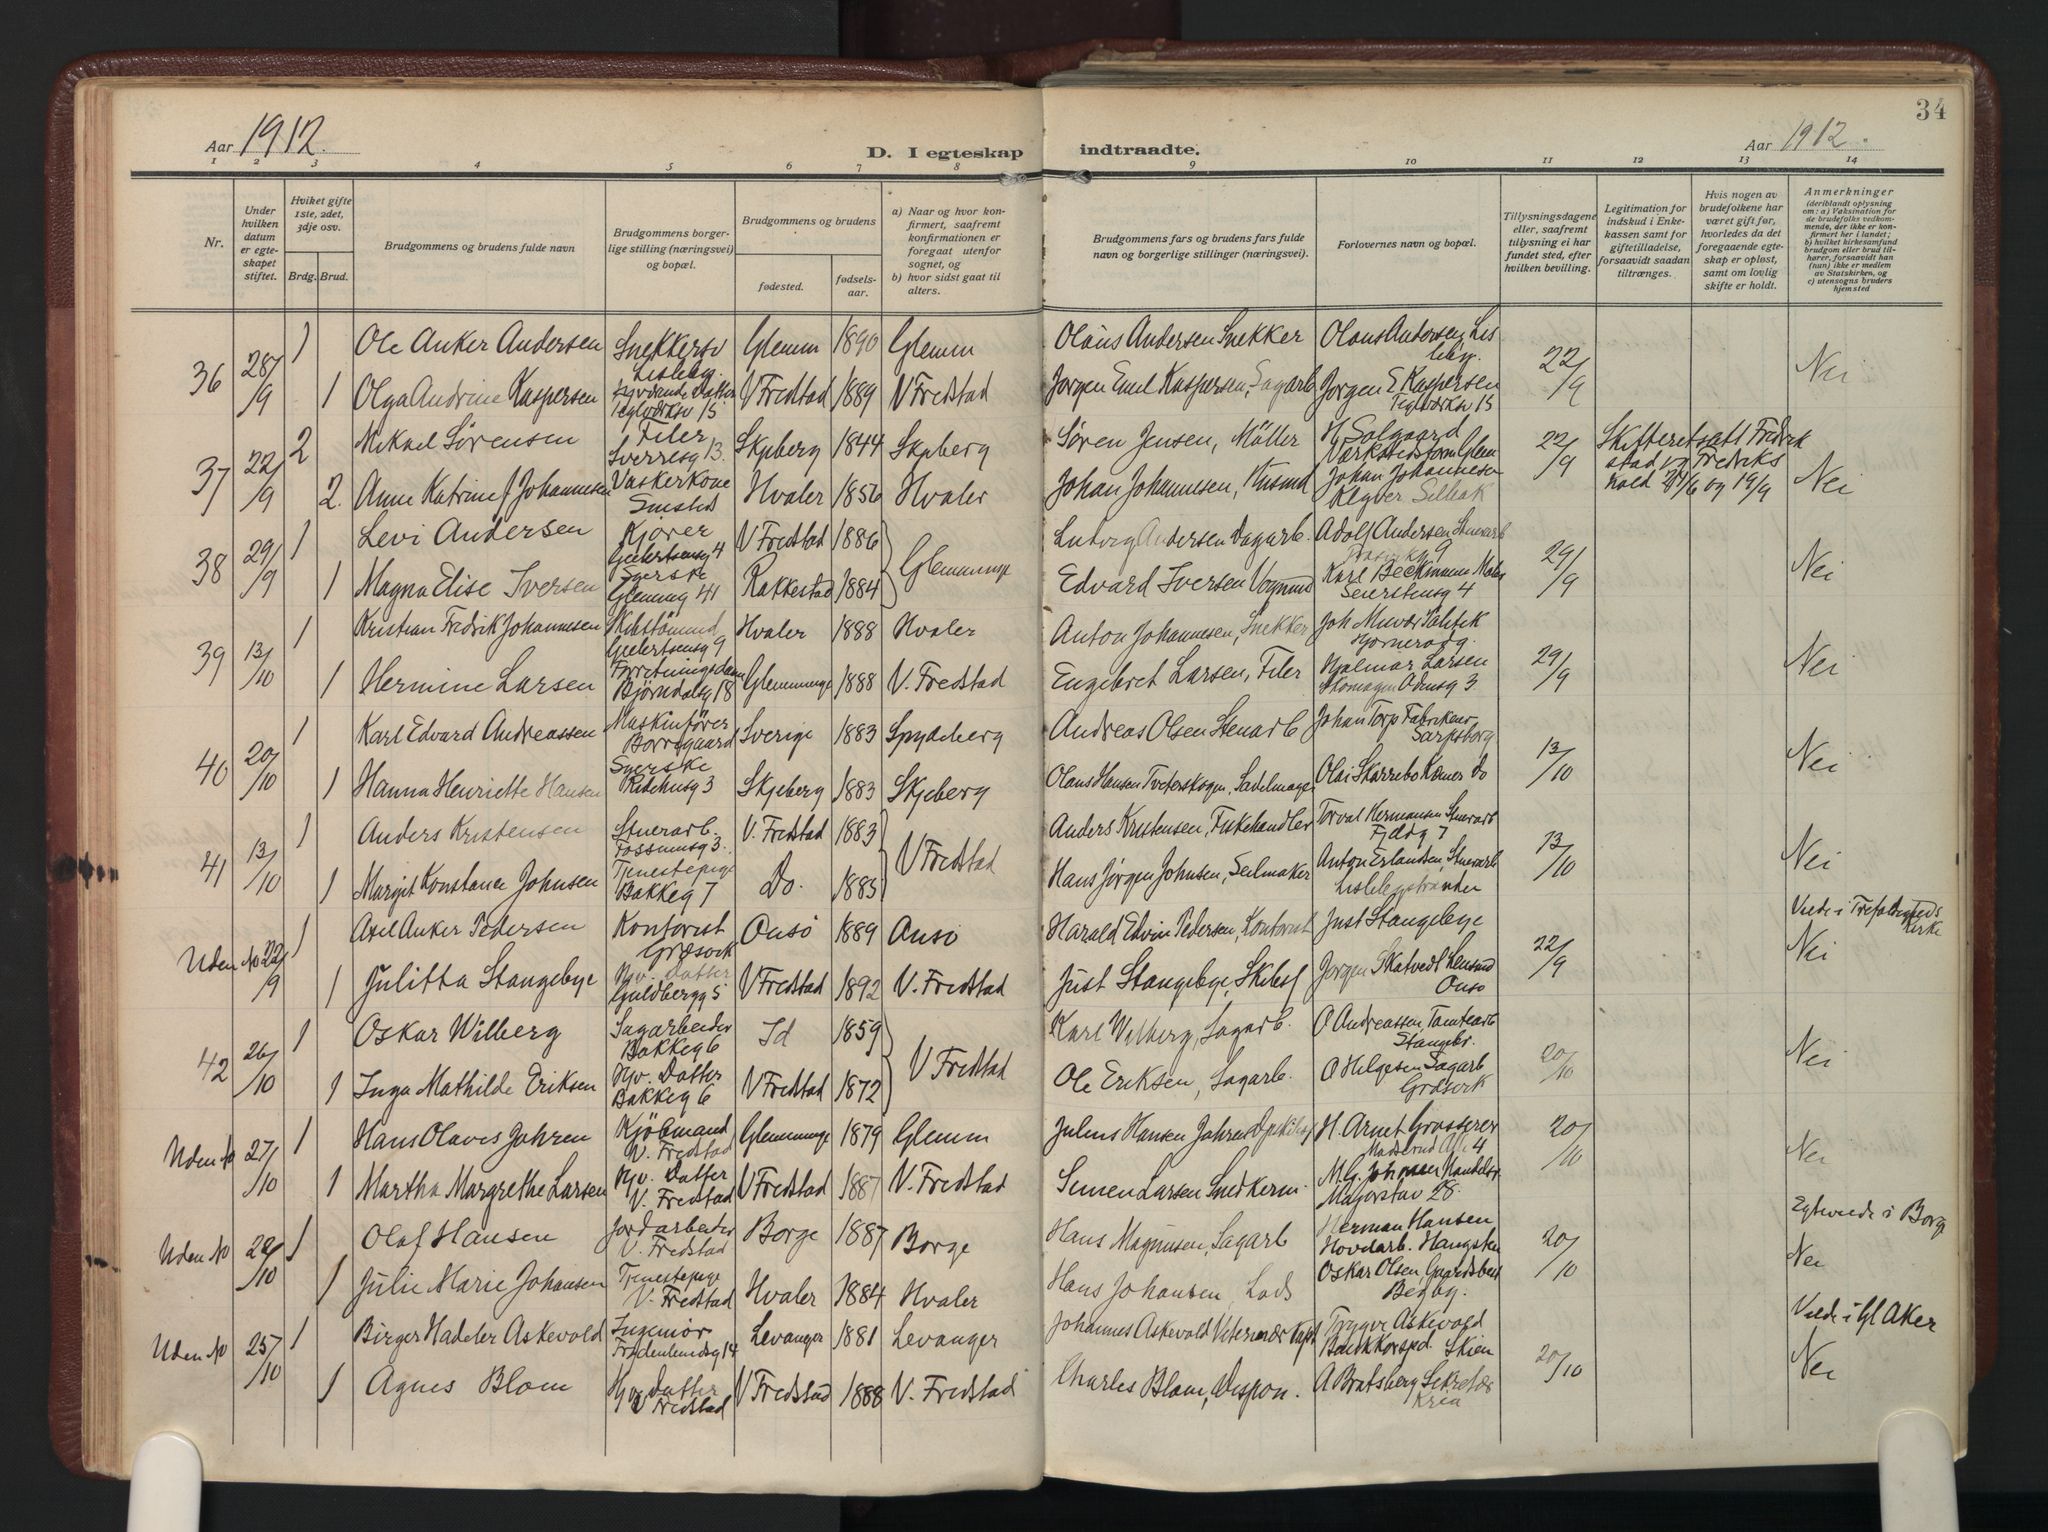 34
Aar 1912.
D. I egteskap indtraadte.
Aar 1912.
1 2 3 4 5 6 7 8 9 10 11 12 13 14
Nr.
Under hvilken datum er egteskapet stiftet.
Hviket gifte 1ste, 2det, 3dje osv.
Brdg. Brud.
Brudgommens og brudens fulde navn
Brudgommens borgerlige stilling (næringsvei) og bopæl.
Brudgommens og brudens
fødested.
fødselsaar.
a) Naar og hvor konfirmert, saafremt konfirmationen er foregaat utenfor sognet, og
b) hvor sidst gaat til alters.
Brudgommens fars og brudens fars fulde navn og borgerlige stillinger (næringsvei).
Forlovernes navn og bopæl.
Tillysningsdagene eller, saafremt tillysning ei har fundet sted, efter hvilken bevilling.
Legitimation for indskud i Enkekassen samt for giftetilladelse, forsaavidt saadan tiltrænges.
Hvis nogen av brudefolkene har været gift før, hvorledes da det foregaaende egteskap er opløst, samt om lovlig skifte er holdt.
Anmerkninger
(deriblandt oplysning om: a) Vaksination for de brudefolks vedkommende, der ikke er konfirmert her i landet; b) hvilket kirkesamfund brudgom eller brud tilhører, forsaavidt han (hun) ikke er medlem av Statskirken, og c) utensogns bruders hjemsted
36 28/9 1 Ole Anker Andersen Snekkersv Lisleby. Glemm 1890 Glemm Olaus Andersen Snekker Olaus Andersen, Lisleby. 22/9 Nei
1 Olga Andrine Kaspersen Hjv. Datter Teglverksv 15 V Fredstad 1889 V Fredstad Jørgen Emil Kaspersen, Sagarb. Jørgen E. Kaspersen Teglverksv 15
37 22/9 2 Mikael Sørensen Filer Sverresg 13. Skjeberg 1844 Skjeberg Søren Jensen, Møller H. Solgaard Værkstedsform Glem 22/9 Skifteretsatt Fredrikstad og Fredrikshald og 19/9 Nei
2. Anne Katrine Johannesen Vaskerkone Hvaler 1856 Hvaler Johan Johannesen, Husmd Johan Johannesen Sellebak
38 29/9 1 Levi Andersen Kjører Geelertsensg 4 V Fredstad 1886 Glemminge Ludvig Andersen Dagarb. Adolf Andersen Stuerarb 9 29/9 Nei
1 Magna Elise Iversen Syerske Glemmg 41 Rakkestad 1884 Edvard Iversen Vognmd Karl Beckmann Maler Seierstensg 4
39 13/10 1 Kristian Fredrik Johannesen Skibstømmd Geelertsensg 9 Hvaler 1888 Hvaler Anton Johannesen, Snekker Joh 29/9 Nei
1 Hermine Larsen Forretningsdame Bjørndalsg 18 Glemminge 1888 V. Fredstad Engebret Larsen, Filer Hjalmar Larsen Skomager Odensg 3
40 20/10 1 Karl Edvard Andreassen Maskinfører Borregaard Sverige 1883 Spydeberg Andreas Olsen Stenarb Johan Torp Fabrikeier Sarpsborg 13/10 Nei
1 Hanna Henriette Hansen Syerske 3 Skjeberg 1883 Skjeberg Olaus Hansen Tveterskogen, Sadelmager Olai Skarrebo Kæmner Do
41 13/10 1 Anders Kristensen Stuerarb. Fossumsg 3. V. Fredstad 1883 V Fredstad Anders Kristensen, Fiskehandler Torval Hermansen Stuerarb 7 13/10 Nei
1 Margit Konstance Johnsen Tjenestepige Bakkeg 7 Do. 1885 Hans Jørgen Johnsen, Seilmaker Anton Erlandsen, Stuerarb Lislebystranden
Uden No 22/9 1 Axel Anker Pedersen Kontorist Græsvik Onsø 1889 Onsø Harald Edvin Pedersen, Kontorist Just Stangebye 22/9 Viede i Trefoldigheds Kirke Nei
1 Julitta Stangebye Hjv. Datter Guldbergg 5 V Fredstad 1892 V. Fredstad Just Stangebye, Skibsf Jørgen Skatvedt Lensmd Onsø
42 26/10 1 Oskar Wilberg Sagarbeider Bakkeg 6 Id 1859 V Fredstad Karl Wilberg, Sagarb. O Andreassen, Tomtearb Stangeby. 20/10 Nei
1 Inga Mathilde Eriksen Hjv. Datter Bakkeg 6 V Fredstad 1872 Ole Eriksen, Sagarb. O Helgesen Sagarb Græsvik
Uden No 27/10 1 Hans Olaves Jahren Kjøbmand V. Fredstad Glemminge 1879 Glemm Julius Hansen Jahren H. Arnet Grosserer 4 20/10 Nei
1 Martha Margrethe Larsen Hjv. Datter V. Fredstad V Fredstad 1887 V. Fredstad Simen Larsen Snedkerm. M. G. Johnsen Handelsr. Majorstuv 28.
Uden No 1 Olaf Hansen Jordarbeider V. Fredstad Borge 1887 Borge Hans Magnusen, Sagarb Herman Hansen Hovdarb. 20/10 Egteviede i Borge Nei
1 Julie Marie Johansen Tjenestepige V. Fredstad Hvaler 1884 Hvaler Hans Johansen, Lods Oskar Olsen, Gaardsbest Begby.
Uden No 25/10 1 Birger Hadeler Askevold Ingeniør 14 Levanger 1881 Levanger Johannes Askevold Veterinær Kapt Trygve Askevold Bankkorspd. Skien 20/10 Viede i Gl Aker Nei
1 Agnes Blom Hjv. Datter V Fredstad V Fredstad 1888 V. Fredstad Charles Blom, Dispon. A Bratsberg Sekretær Krea